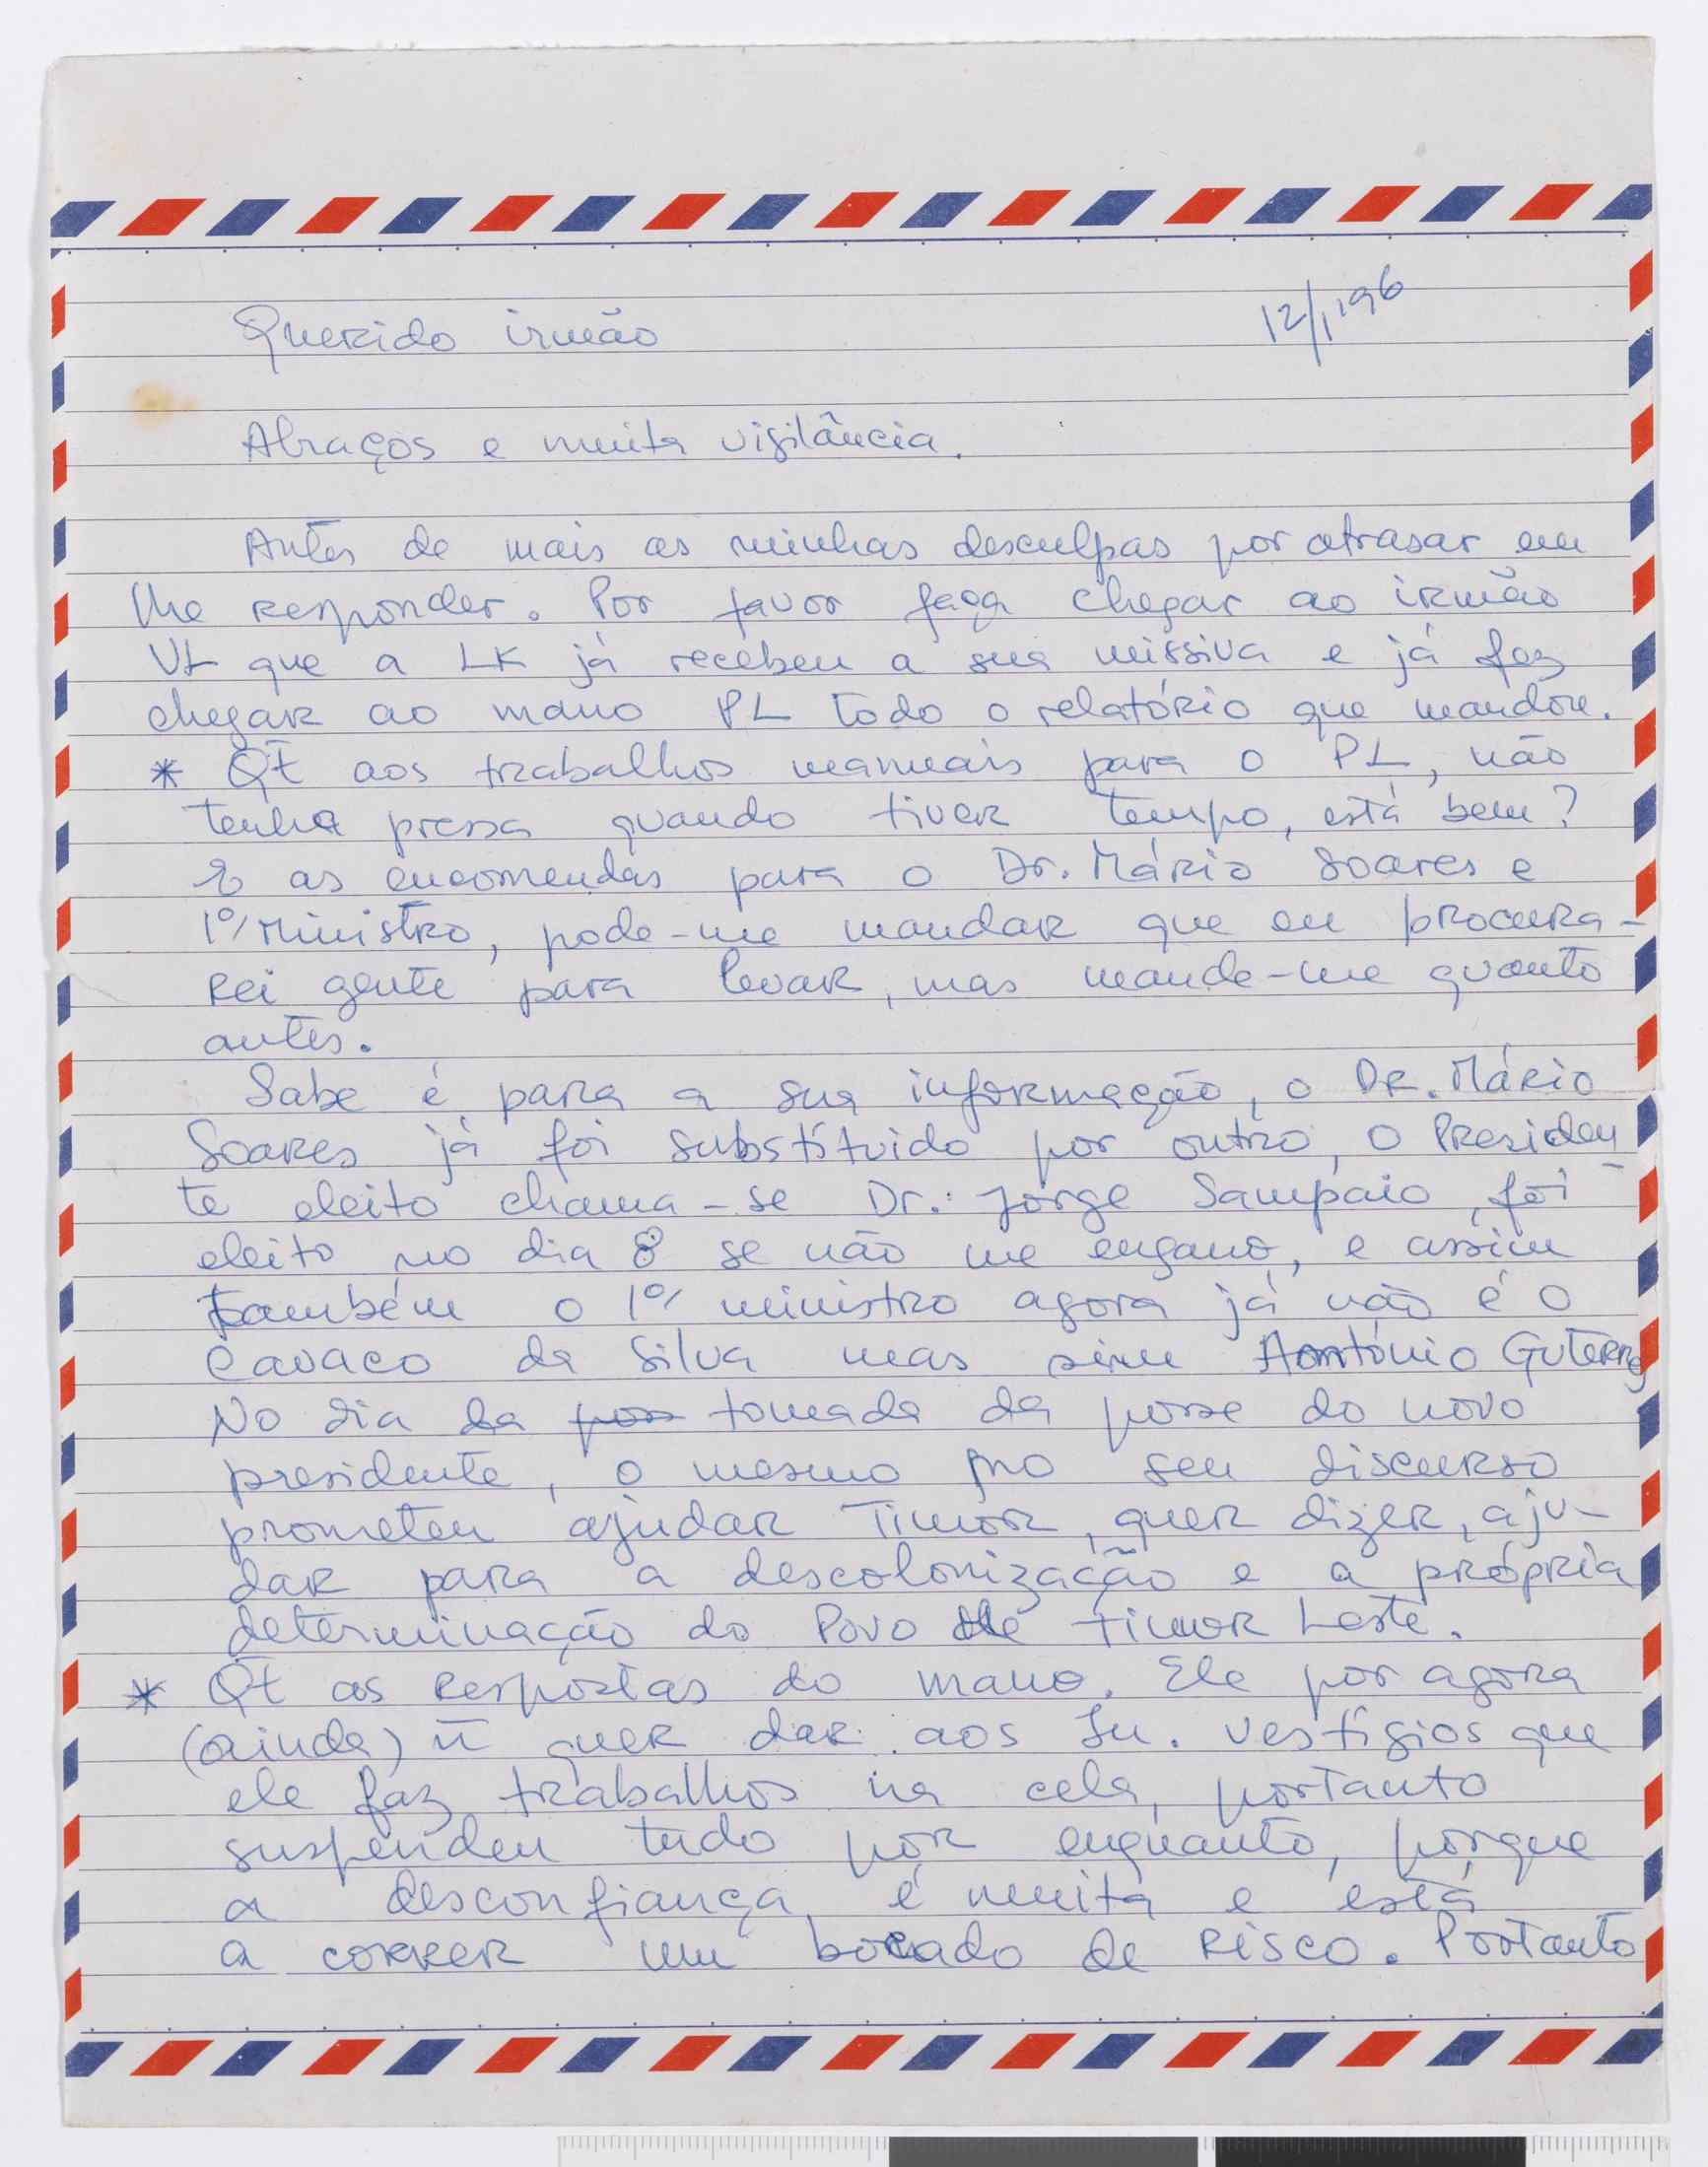 12/1/96
Querido irmão
Abraços e muita vigilância.
Antes de mais as minhas desculpas por atrasar em
lhe responder. Por favor faça chegar ao irmão
VL que a LK já recebeu a sua missiva e já fez
chegar ao mano PL todo o relatório que mandou.
* Qt aos trabalhos manuais para o PL, não
tenha pressa quando tiver tempo, está bem?
E as encomendas para o Dr. Mário Soares e
1º/Ministro, pode-me mandar que eu procura-
rei gente para levar, mas mande-me quanto
antes.
Sabe é para a sua informação, o Dr. Mário
Soares já foi substítuido por outro, o Presiden-
te eleito chama-se Dr.: Jorge Sampaio, foi
eleito no dia 8 se não me engano, e assim
também o 1º/ ministro agora já não é o
Cavaco da Silva mas sim António Guterres
No dia da pos tomada da posse do novo
presidente, o mesmo no seu discurso
prometeu ajudar Timor, quer dizer, aju-
dar para a descolonização e a própria
determinação do Povo de Timor Leste.
* Qt as respostas do mano. Ele por agora
(ainda) ñ quer dar aos In. vestígios que
ele faz trabalhos na cela, portanto
suspendeu tudo por enquanto, porque
a desconfiança é muita e está
a correr um bocado de risco. Portanto